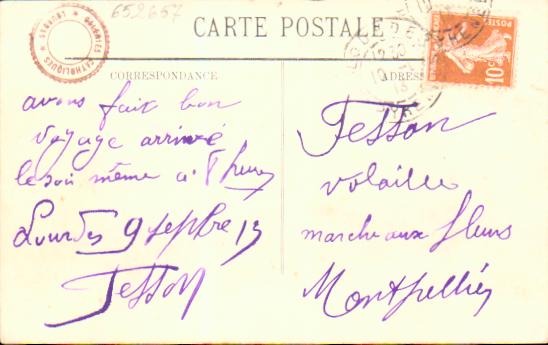 652657
CARTE POSTALE
CORRESPONDANCE
ADRESSE
10c
POSTES
avons fait bon
voyage arrivé
le soir même a 8 heures
Lourdes 9 septbre 13
Tesson
Tesson
volaille
marche aux fleurs
Montpellier